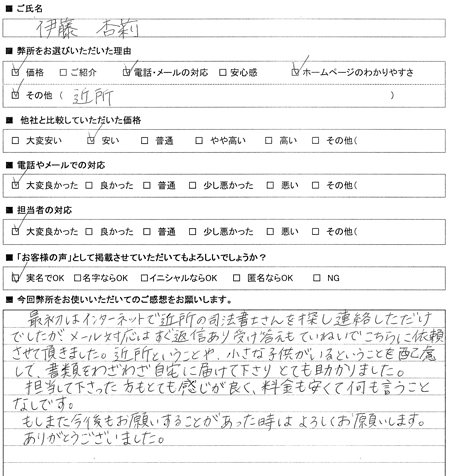 ■ ご氏名
伊藤 杏莉
■ 弊所をお選びいただいた理由
☑ 価格 □ ご紹介 ☑ 電話・メールの対応 □ 安心感 ☑ ホームページのわかりやすさ
☑ その他 ( 近所 )
■ 他社と比較していただいた価格
□ 大変安い ☑ 安い □ 普通 □ やや高い □ 高い □ その他(
■ 電話やメールでの対応
☑ 大変良かった □ 良かった □ 普通 □ 少し悪かった □ 悪い □ その他(
■ 担当者の対応
☑ 大変良かった □ 良かった □ 普通 □ 少し悪かった □ 悪い □ その他(
■ 「お客様の声」として掲載させていただいてもよろしいでしょうか？
☑ 実名でOK □ 名字ならOK □ イニシャルならOK □ 匿名ならOK □ NG
■ 今回弊所をお使いいただいてのご感想をお願いします。
最初はインターネットで近所の司法書士さんを探し連絡しただけ
でしたが、メール対応はすぐ返信あり受け答えもていねいでこちらに依頼
させて頂きました。近所ということや、小さな子供がいるということを配慮
して、書類をわざわざ自宅に届けて下さり とても助かりました。
担当して下さった方もとても感じが良く、料金も安くて何も言うこと
なしです。
もしまた今後もお願いすることがあった時は よろしくお願いします。
ありがとうございました。